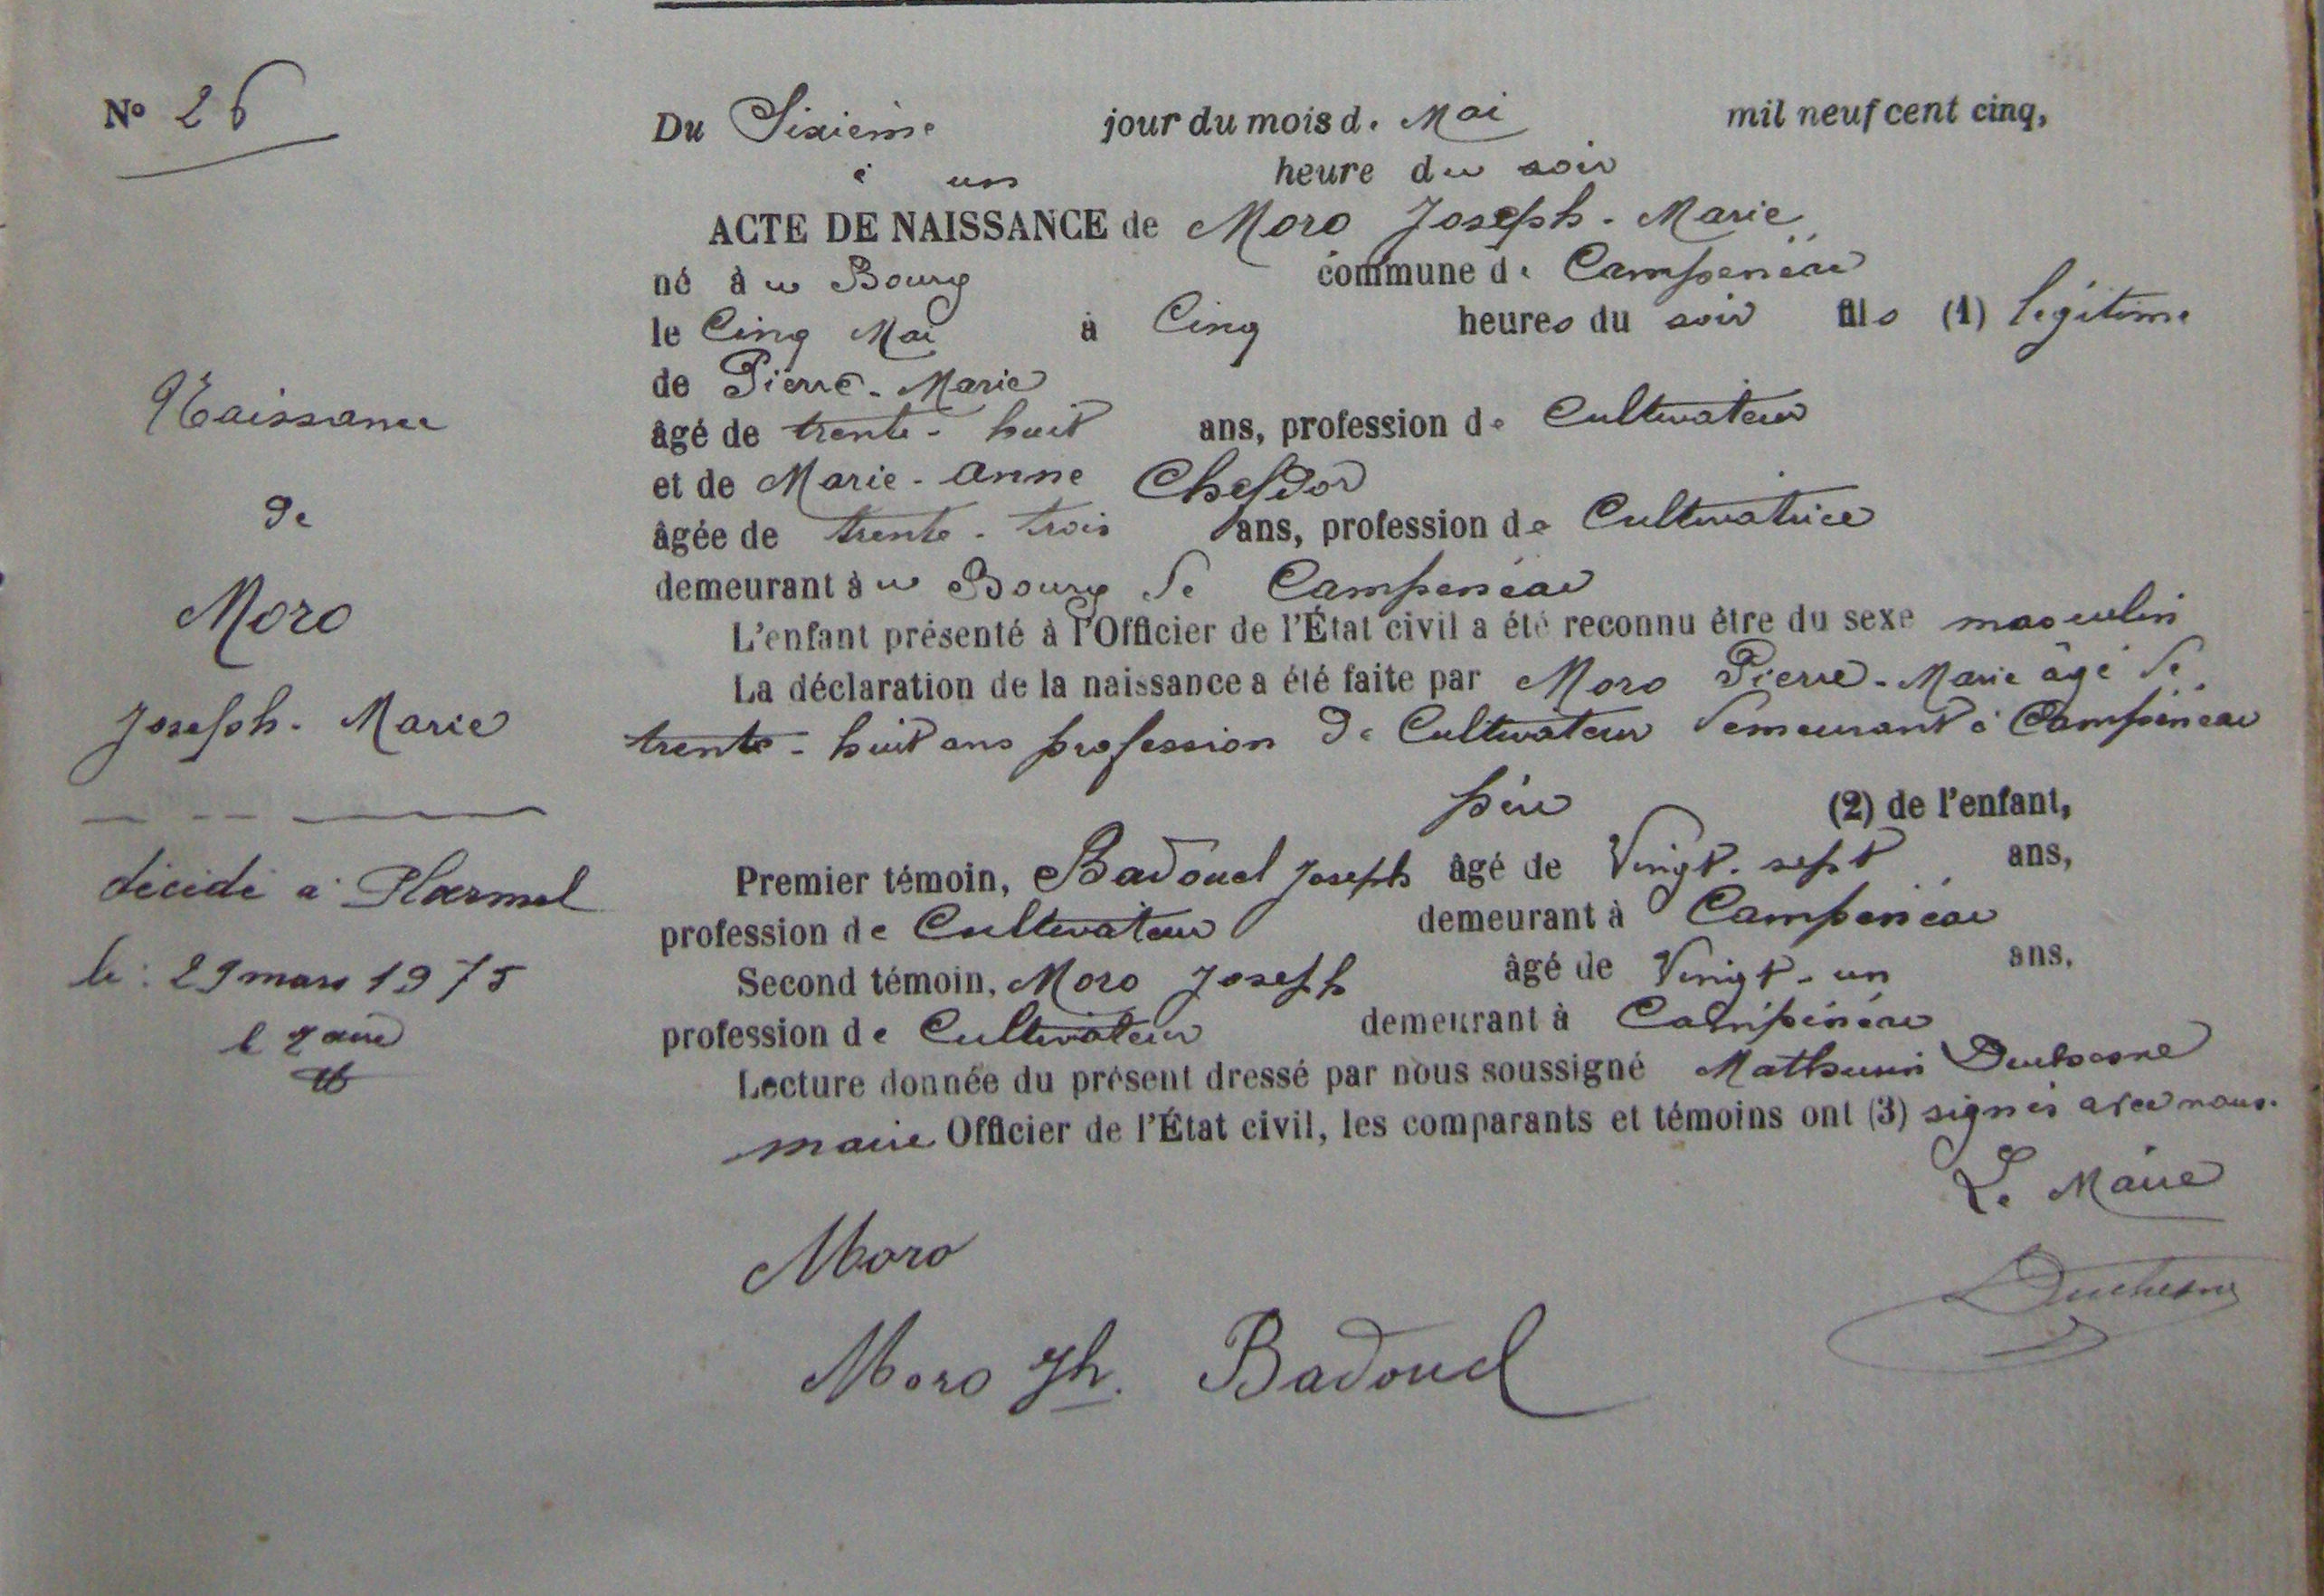 N° 26
Naissance
de
Moro
Joseph-Marie
décédé à Ploërmel
le: 29 mars 1975
Du Sixième jour du mois de Mai mil neuf cent cinq,
à un heure du soir
ACTE DE NAISSANCE de Moro Joseph-Marie
né à u Bourg commune de Campénéac
le Cinq Mai à Cinq heures du soir fils (1) légitime
de Pierre-Marie
âgé de trente-huit ans, profession de Cultivateur
et de Marie-Anne Chefdor
âgée de trente-trois ans, profession de Cultivatrice
demeurant à u Bourg de Campénéac
L'enfant présenté à l'Officier de l'État civil a été reconnu être du sexe masculin
La déclaration de la naissance a été faite par Moro Pierre-Marie âgé de
trente-huit ans profession de Cultivateur demeurant à Campénéac
père (2) de l'enfant,
Premier témoin, Badouel Joseph âgé de Vingt-sept ans,
profession de Cultivateur demeurant à Campénéac
Second témoin, Moro Joseph âgé de Vingt-un ans,
profession de Cultivateur demeurant à Campénéac
Lecture donnée du présent dressé par nous soussigné Mathurin Duchesne
maire Officier de l'État civil, les comparants et témoins ont (3) signés avec nous.
Le Maire
Moro
Duchesne
Moro Jh. Badouel